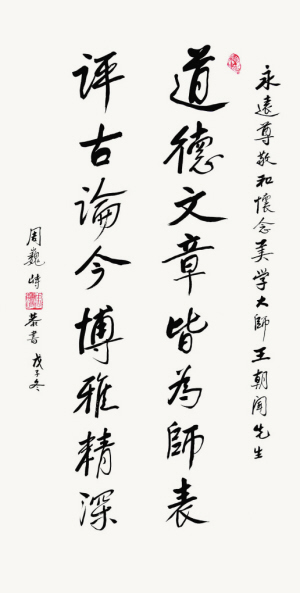 永遠尊敬和懷念美学大師王朝聞先生
道德文章皆為師表
評古論今博雅精深
周巍峙
恭書 戊子冬